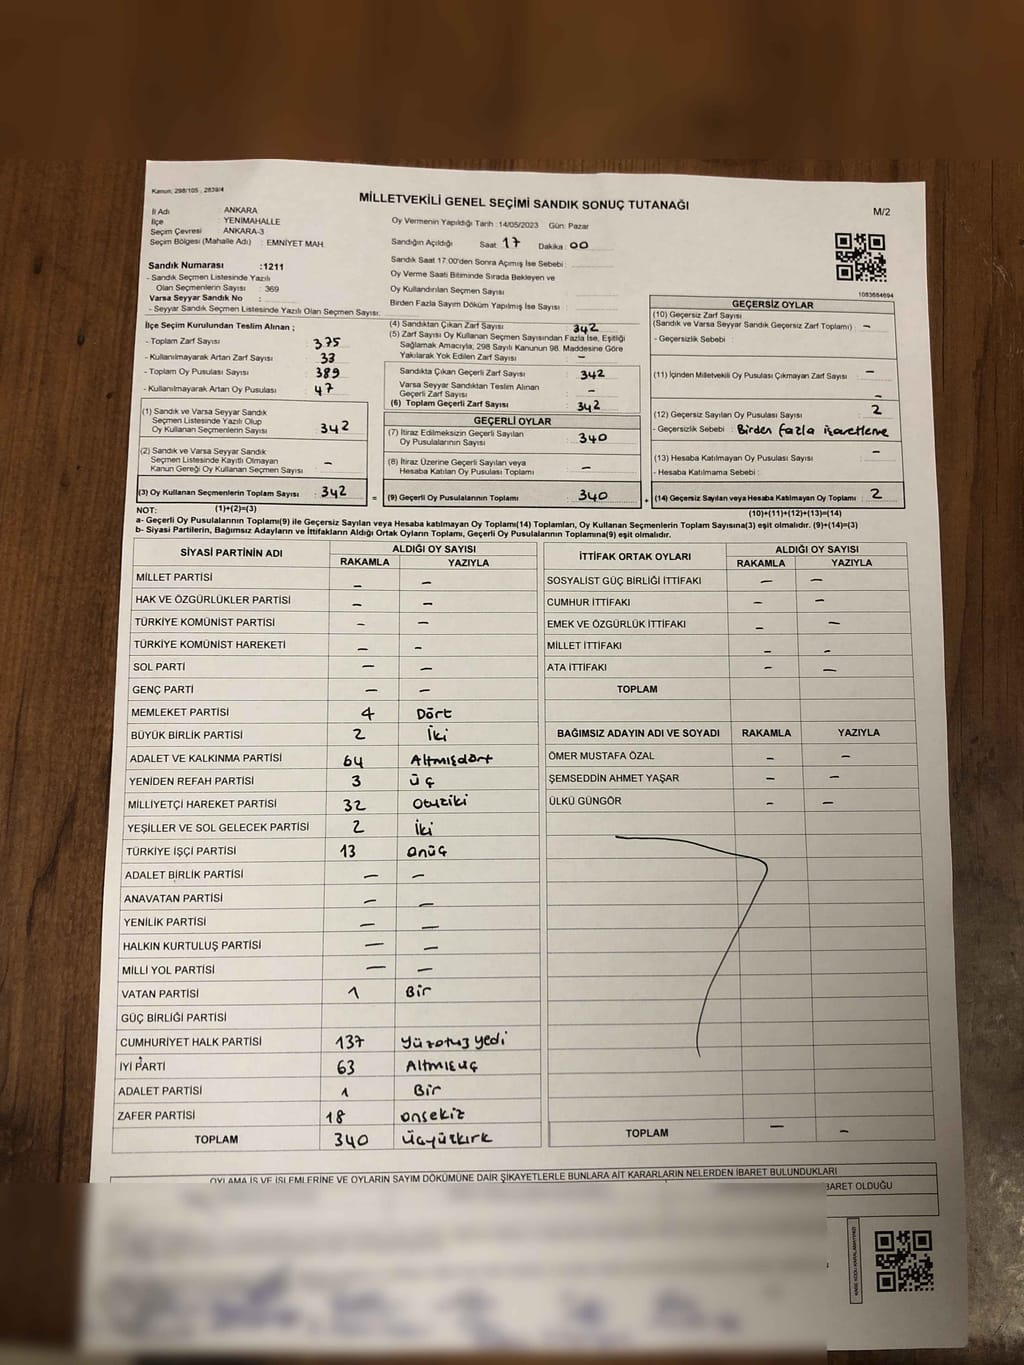 Kanun: 298/105 , 2839/4
MİLLETVEKİLİ GENEL SEÇİMİ SANDIK SONUÇ TUTANAĞI
M/2
İl Adı : ANKARA
İlçe : YENİMAHALLE
Seçim Çevresi : ANKARA-3
Seçim Bölgesi (Mahalle Adı) : EMNİYET MAH.
Oy Vermenin Yapıldığı Tarih : 14/05/2023 Gün: Pazar
Sandığın Açıldığı Saat: 17 Dakika: 00
Sandık Saat 17:00'den Sonra Açılmış İse Sebebi :
Oy Verme Saati Bitiminde Sırada Bekleyen ve
Oy Kullandırılan Seçmen Sayısı :
Birden Fazla Sayım Döküm Yapılmış İse Sayısı :
1083684694
Sandık Numarası :1211
- Sandık Seçmen Listesinde Yazılı
Olan Seçmenlerin Sayısı : 369
Varsa Seyyar Sandık No :
- Seyyar Sandık Seçmen Listesinde Yazılı Olan Seçmen Sayısı:
İlçe Seçim Kurulundan Teslim Alınan ;
- Toplam Zarf Sayısı : 375
- Kullanılmayarak Artan Zarf Sayısı : 33
- Toplam Oy Pusulası Sayısı : 389
- Kullanılmayarak Artan Oy Pusulası : 47
(1) Sandık ve Varsa Seyyar Sandık
Seçmen Listesinde Yazılı Olup
Oy Kullanan Seçmenlerin Sayısı : 342
(2) Sandık ve Varsa Seyyar Sandık
Seçmen Listesinde Kayıtlı Olmayan
Kanun Gereği Oy Kullanan Seçmen Sayısı : –
(3) Oy Kullanan Seçmenlerin Toplam Sayısı : 342
(1)+(2)=(3)
(4) Sandıktan Çıkan Zarf Sayısı : 342
(5) Zarf Sayısı Oy Kullanan Seçmen Sayısından Fazla İse, Eşitliği
Sağlamak Amacıyla; 298 Sayılı Kanunun 98. Maddesine Göre
Yakılarak Yok Edilen Zarf Sayısı : –
Sandıkta Çıkan Geçerli Zarf Sayısı : 342
Varsa Seyyar Sandıktan Teslim Alınan
Geçerli Zarf Sayısı : –
(6) Toplam Geçerli Zarf Sayısı : 342
GEÇERLİ OYLAR
(7) İtiraz Edilmeksizin Geçerli Sayılan
Oy Pusulalarının Sayısı : 340
(8) İtiraz Üzerine Geçerli Sayılan veya
Hesaba Katılan Oy Pusulası Toplamı : –
= (9) Geçerli Oy Pusulalarının Toplamı : 340
GEÇERSİZ OYLAR
(10) Geçersiz Zarf Sayısı
(Sandık ve Varsa Seyyar Sandık Geçersiz Zarf Toplamı) : –
- Geçersizlik Sebebi :
(11) İçinden Milletvekili Oy Pusulası Çıkmayan Zarf Sayısı : –
–
(12) Geçersiz Sayılan Oy Pusulası Sayısı : 2
- Geçersizlik Sebebi : Birden fazla işaretleme
(13) Hesaba Katılmayan Oy Pusulası Sayısı : –
- Hesaba Katılmama Sebebi :
+ (14) Geçersiz Sayılan veya Hesaba Katılmayan Oy Toplamı : 2
(10)+(11)+(12)+(13)=(14)
NOT:
a- Geçerli Oy Pusulalarının Toplamı(9) ile Geçersiz Sayılan veya Hesaba katılmayan Oy Toplamı(14) Toplamları, Oy Kullanan Seçmenlerin Toplam Sayısına(3) eşit olmalıdır. (9)+(14)=(3)
b- Siyasi Partilerin, Bağımsız Adayların ve İttifakların Aldığı Ortak Oyların Toplamı, Geçerli Oy Pusulalarının Toplamına(9) eşit olmalıdır.
SİYASİ PARTİNİN ADI ALDIĞI OY SAYISI
RAKAMLA YAZIYLA
MİLLET PARTİSİ – –
HAK VE ÖZGÜRLÜKLER PARTİSİ – –
TÜRKİYE KOMÜNİST PARTİSİ – –
TÜRKİYE KOMÜNİST HAREKETİ – –
SOL PARTİ – –
GENÇ PARTİ – –
MEMLEKET PARTİSİ 4 Dört
BÜYÜK BİRLİK PARTİSİ 2 İki
ADALET VE KALKINMA PARTİSİ 64 Altmışdört
YENİDEN REFAH PARTİSİ 3 üç
MİLLİYETÇİ HAREKET PARTİSİ 32 Otuziki
YEŞİLLER VE SOL GELECEK PARTİSİ 2 İki
TÜRKİYE İŞÇİ PARTİSİ 13 onüç
ADALET BİRLİK PARTİSİ – –
ANAVATAN PARTİSİ – –
YENİLİK PARTİSİ – –
HALKIN KURTULUŞ PARTİSİ – –
MİLLİ YOL PARTİSİ – –
VATAN PARTİSİ 1 Bir
GÜÇ BİRLİĞİ PARTİSİ
CUMHURİYET HALK PARTİSİ 137 Yüzotuz yedi
İYİ PARTİ 63 Altmışüç
ADALET PARTİSİ 1 Bir
ZAFER PARTİSİ 18 onsekiz
TOPLAM 340 üçyüzkırk
İTTİFAK ORTAK OYLARI ALDIĞI OY SAYISI
RAKAMLA YAZIYLA
SOSYALİST GÜÇ BİRLİĞİ İTTİFAKI – –
CUMHUR İTTİFAKI – –
EMEK VE ÖZGÜRLÜK İTTİFAKI – –
MİLLET İTTİFAKI – –
ATA İTTİFAKI – –
TOPLAM
BAĞIMSIZ ADAYIN ADI VE SOYADI RAKAMLA YAZIYLA
ÖMER MUSTAFA ÖZAL – –
ŞEMSEDDİN AHMET YAŞAR – –
ÜLKÜ GÜNGÖR – –
TOPLAM – –
OYLAMA İŞ VE İŞLEMLERİNE VE OYLARIN SAYIM DÖKÜMÜNE DAİR ŞİKAYETLERLE BUNLARA AİT KARARLARIN NELERDEN İBARET BULUNDUKLARI
BARET OLDUĞU